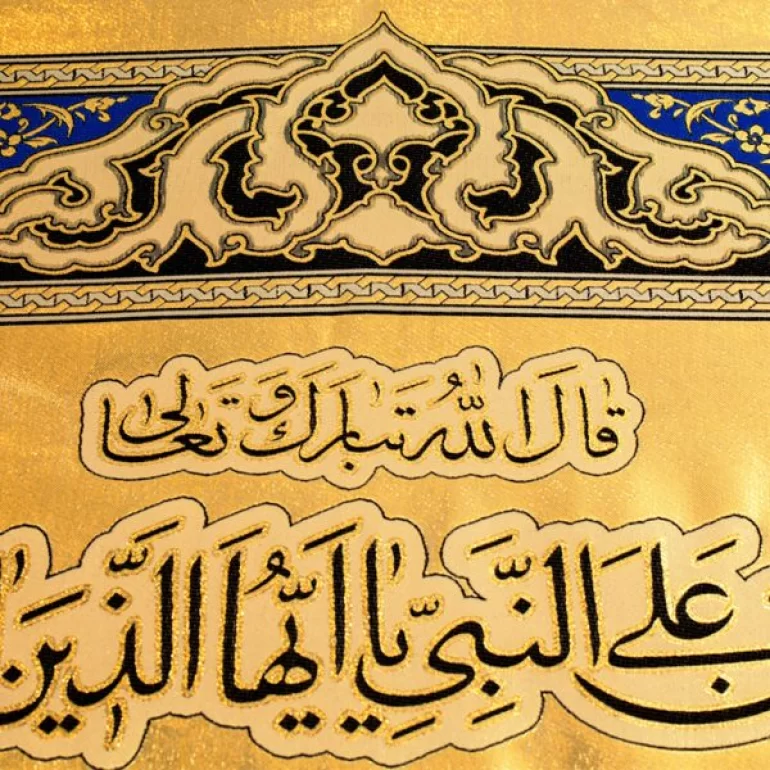 قَالَ اللهُ تَبَارَكَ وَتَعَالَى
عَلَى النَّبِيِّ يَا أَيُّهَا الَّذِينَ